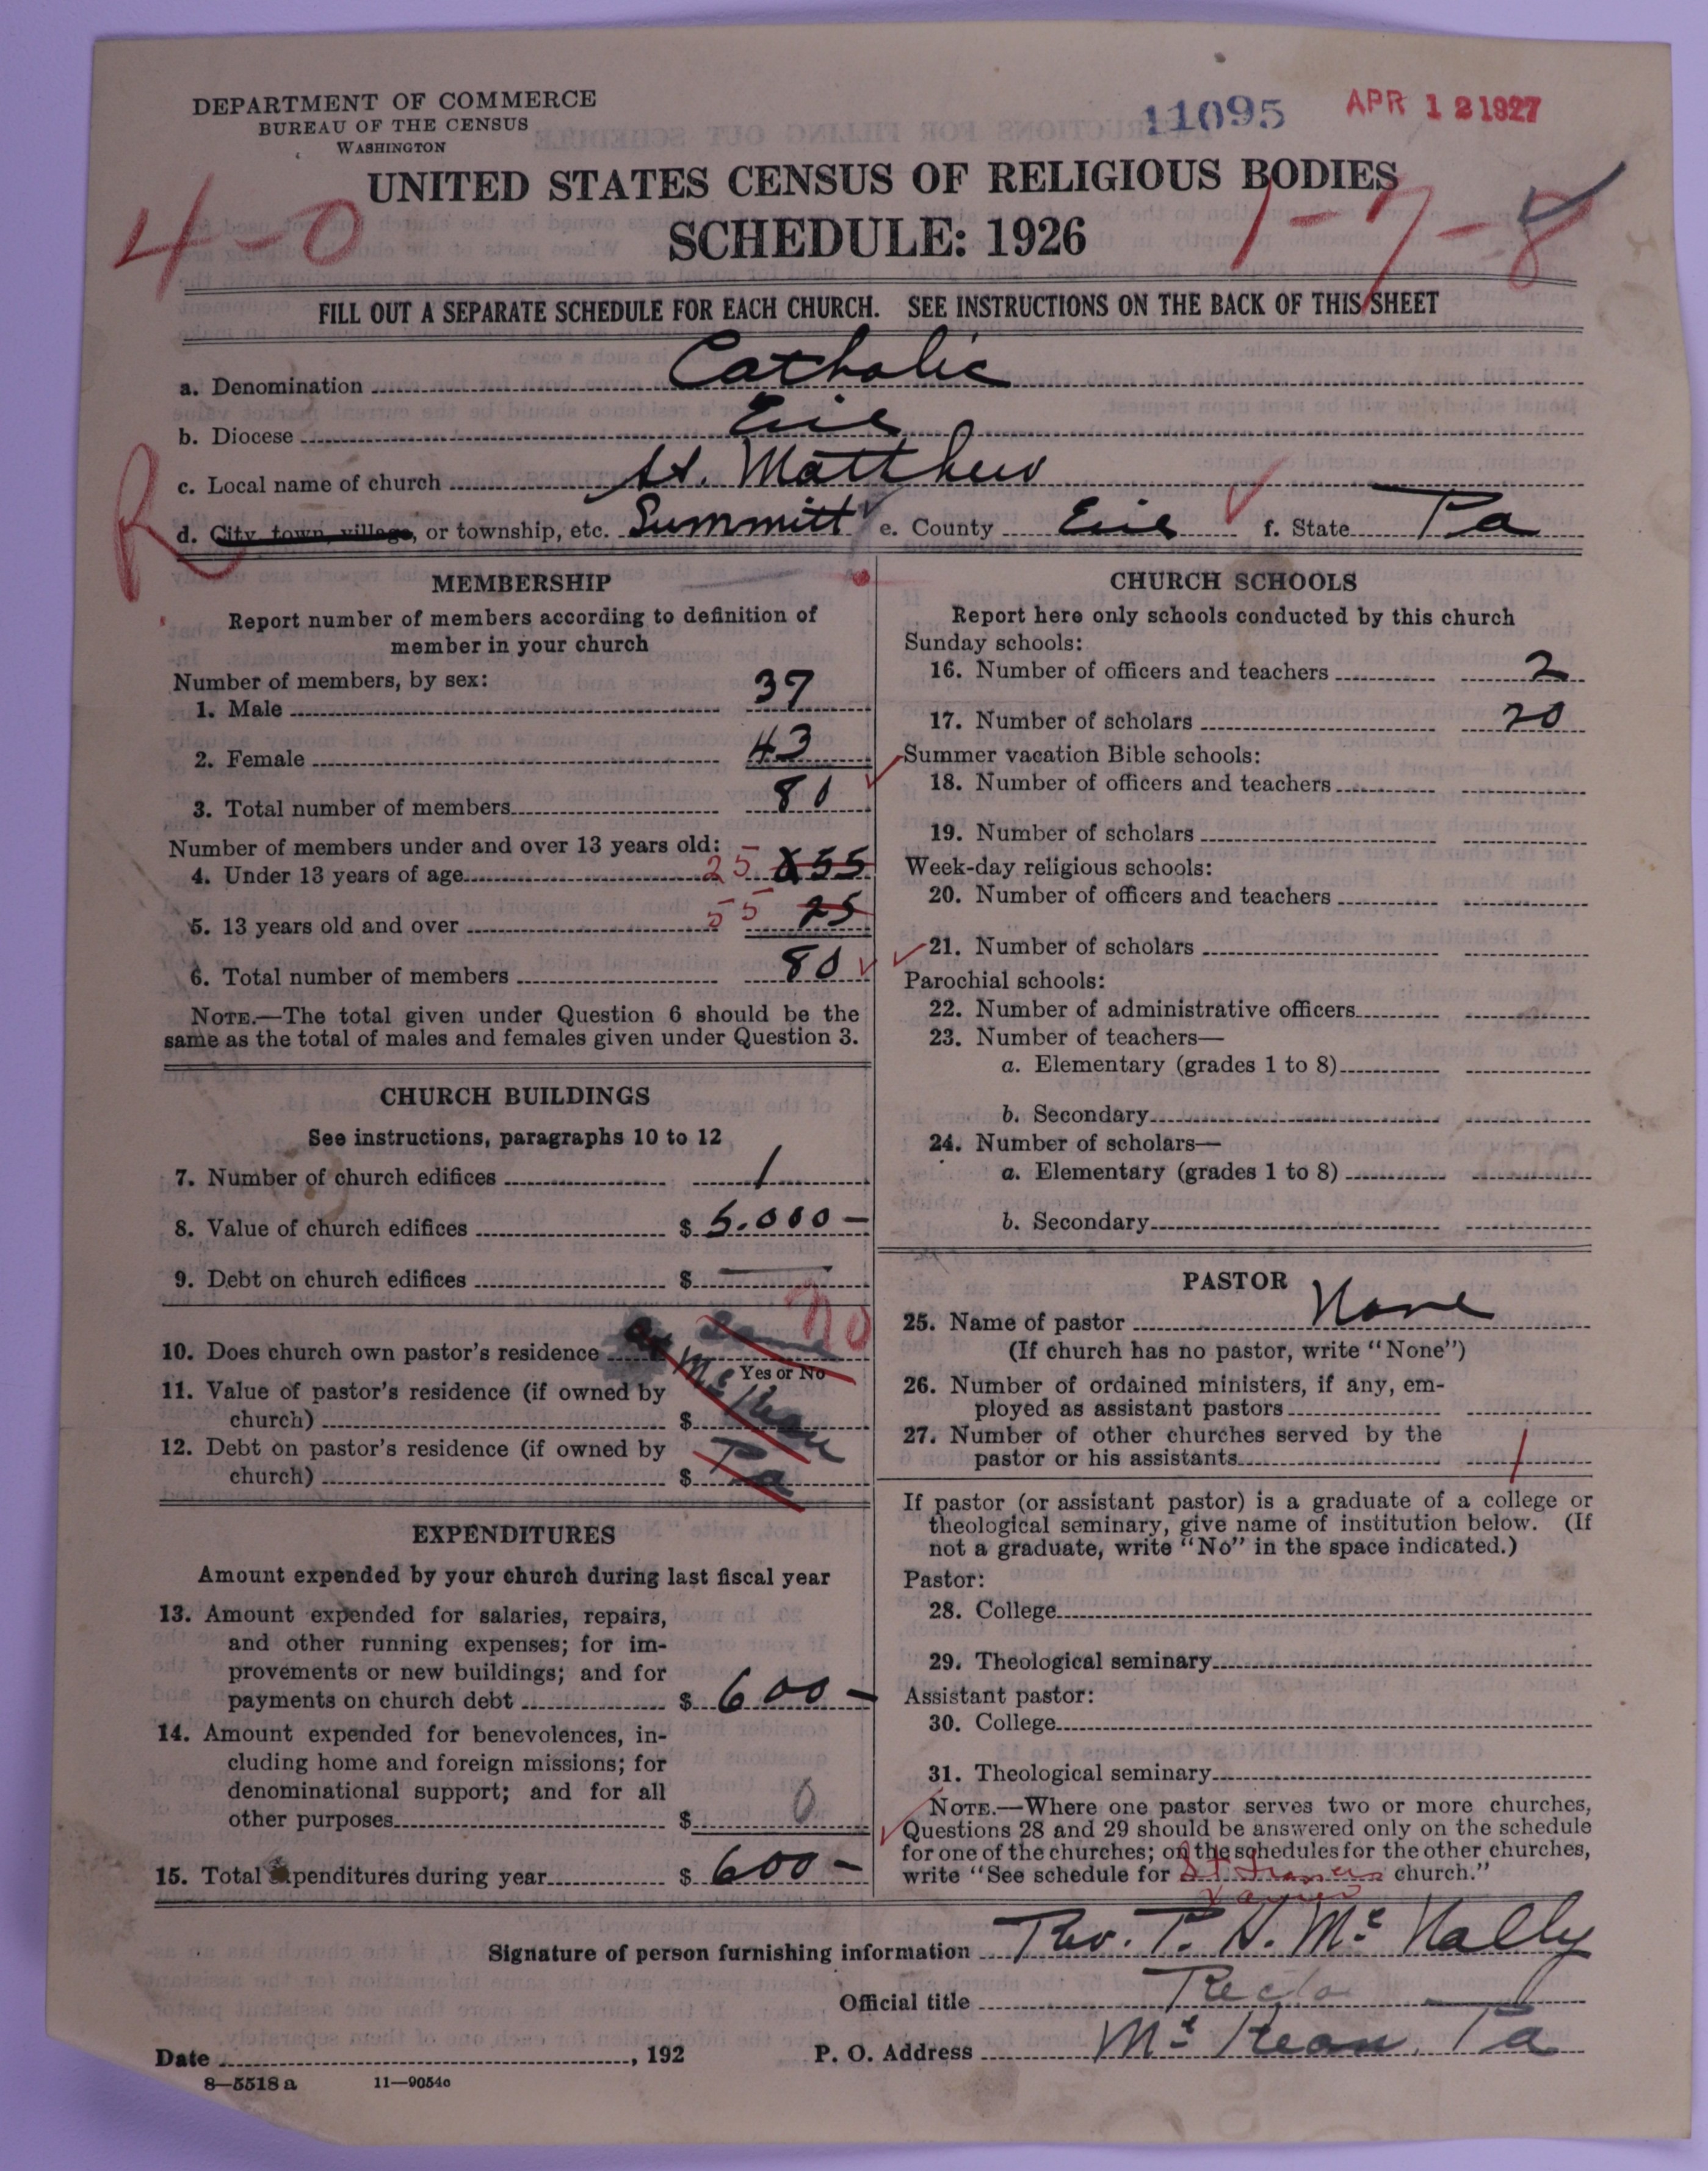 DEPARTMENT OF COMMERCE
BUREAU OF THE CENSUS
WASHINGTON
11095
APR 12 1927
UNITED STATES CENSUS OF RELIGIOUS BODIES
SCHEDULE: 1926
4-0
1-7-8
FILL OUT A SEPARATE SCHEDULE FOR EACH CHURCH. SEE INSTRUCTIONS ON THE BACK OF THIS SHEET
a. Denomination Catholic
b. Diocese Erie
c. Local name of church St. Matthew
R
d. City, town, village, or township, etc. Summitt e. County Erie f. State Pa
MEMBERSHIP
Report number of members according to definition of
member in your church
Number of members, by sex:
1. Male 37
2. Female 43
3. Total number of members 80
Number of members under and over 13 years old:
4. Under 13 years of age 25 55
5. 13 years old and over 55 25
6. Total number of members 80
NOTE.—The total given under Question 6 should be the
same as the total of males and females given under Question 3.
CHURCH BUILDINGS
See instructions, paragraphs 10 to 12
7. Number of church edifices 1
8. Value of church edifices $ 5.000—
9. Debt on church edifices $ —
10. Does church own pastor's residence no
Yes or No
11. Value of pastor's residence (if owned by
church) $ McKean
12. Debt on pastor's residence (if owned by
church) $ Pa
EXPENDITURES
Amount expended by your church during last fiscal year
13. Amount expended for salaries, repairs,
and other running expenses; for im-
provements or new buildings; and for
payments on church debt $ 600—
14. Amount expended for benevolences, in-
cluding home and foreign missions; for
denominational support; and for all
other purposes $ 0
15. Total expenditures during year $ 600—
CHURCH SCHOOLS
Report here only schools conducted by this church
Sunday schools:
16. Number of officers and teachers 2
17. Number of scholars 20
Summer vacation Bible schools:
18. Number of officers and teachers
19. Number of scholars
Week-day religious schools:
20. Number of officers and teachers
21. Number of scholars
Parochial schools:
22. Number of administrative officers
23. Number of teachers—
a. Elementary (grades 1 to 8)
b. Secondary
24. Number of scholars—
a. Elementary (grades 1 to 8)
b. Secondary
PASTOR
25. Name of pastor None
(If church has no pastor, write "None")
26. Number of ordained ministers, if any, em-
ployed as assistant pastors
27. Number of other churches served by the
pastor or his assistants 1
If pastor (or assistant pastor) is a graduate of a college or
theological seminary, give name of institution below. (If
not a graduate, write "No" in the space indicated.)
Pastor:
28. College
29. Theological seminary
Assistant pastor:
30. College
31. Theological seminary
NOTE.—Where one pastor serves two or more churches,
Questions 28 and 29 should be answered only on the schedule
for one of the churches; on the schedules for the other churches,
write "See schedule for St. Francis Xavier church."
Signature of person furnishing information Rev. P. H. McNally
Official title Rector
P. O. Address McKean, Pa
Date , 192
8—5518 a 11—9054c